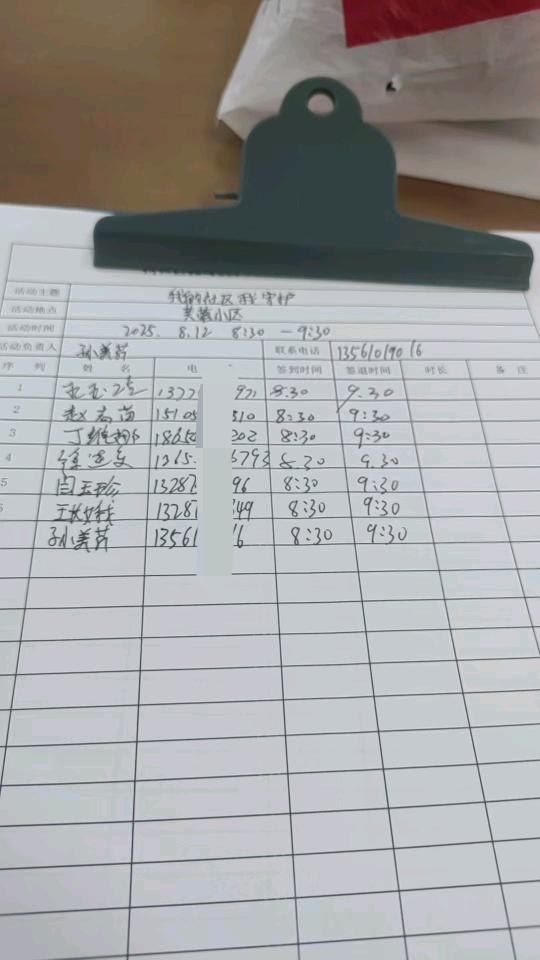 活动主题 我的社区我守护
活动地点 芙蓉小区
活动时间 2025. 8.12 8:30 — 9:30
活动负责人 孙美芹 联系电话
序 列 姓 名 电 签到时间 签退时间 时长 备 注
1 1377 921 8:30 9.30
2 赵 苗 15105 310 8:30 9:30
3 丁维娜 18650 202 8:30 9:30
4 徐 6793 8.30 9.30
5 闫玉珍 13287 96 8:30 9:30
6 王 1328 449 8:30 9:30
孙美芹 13561 16 8:30 9:30